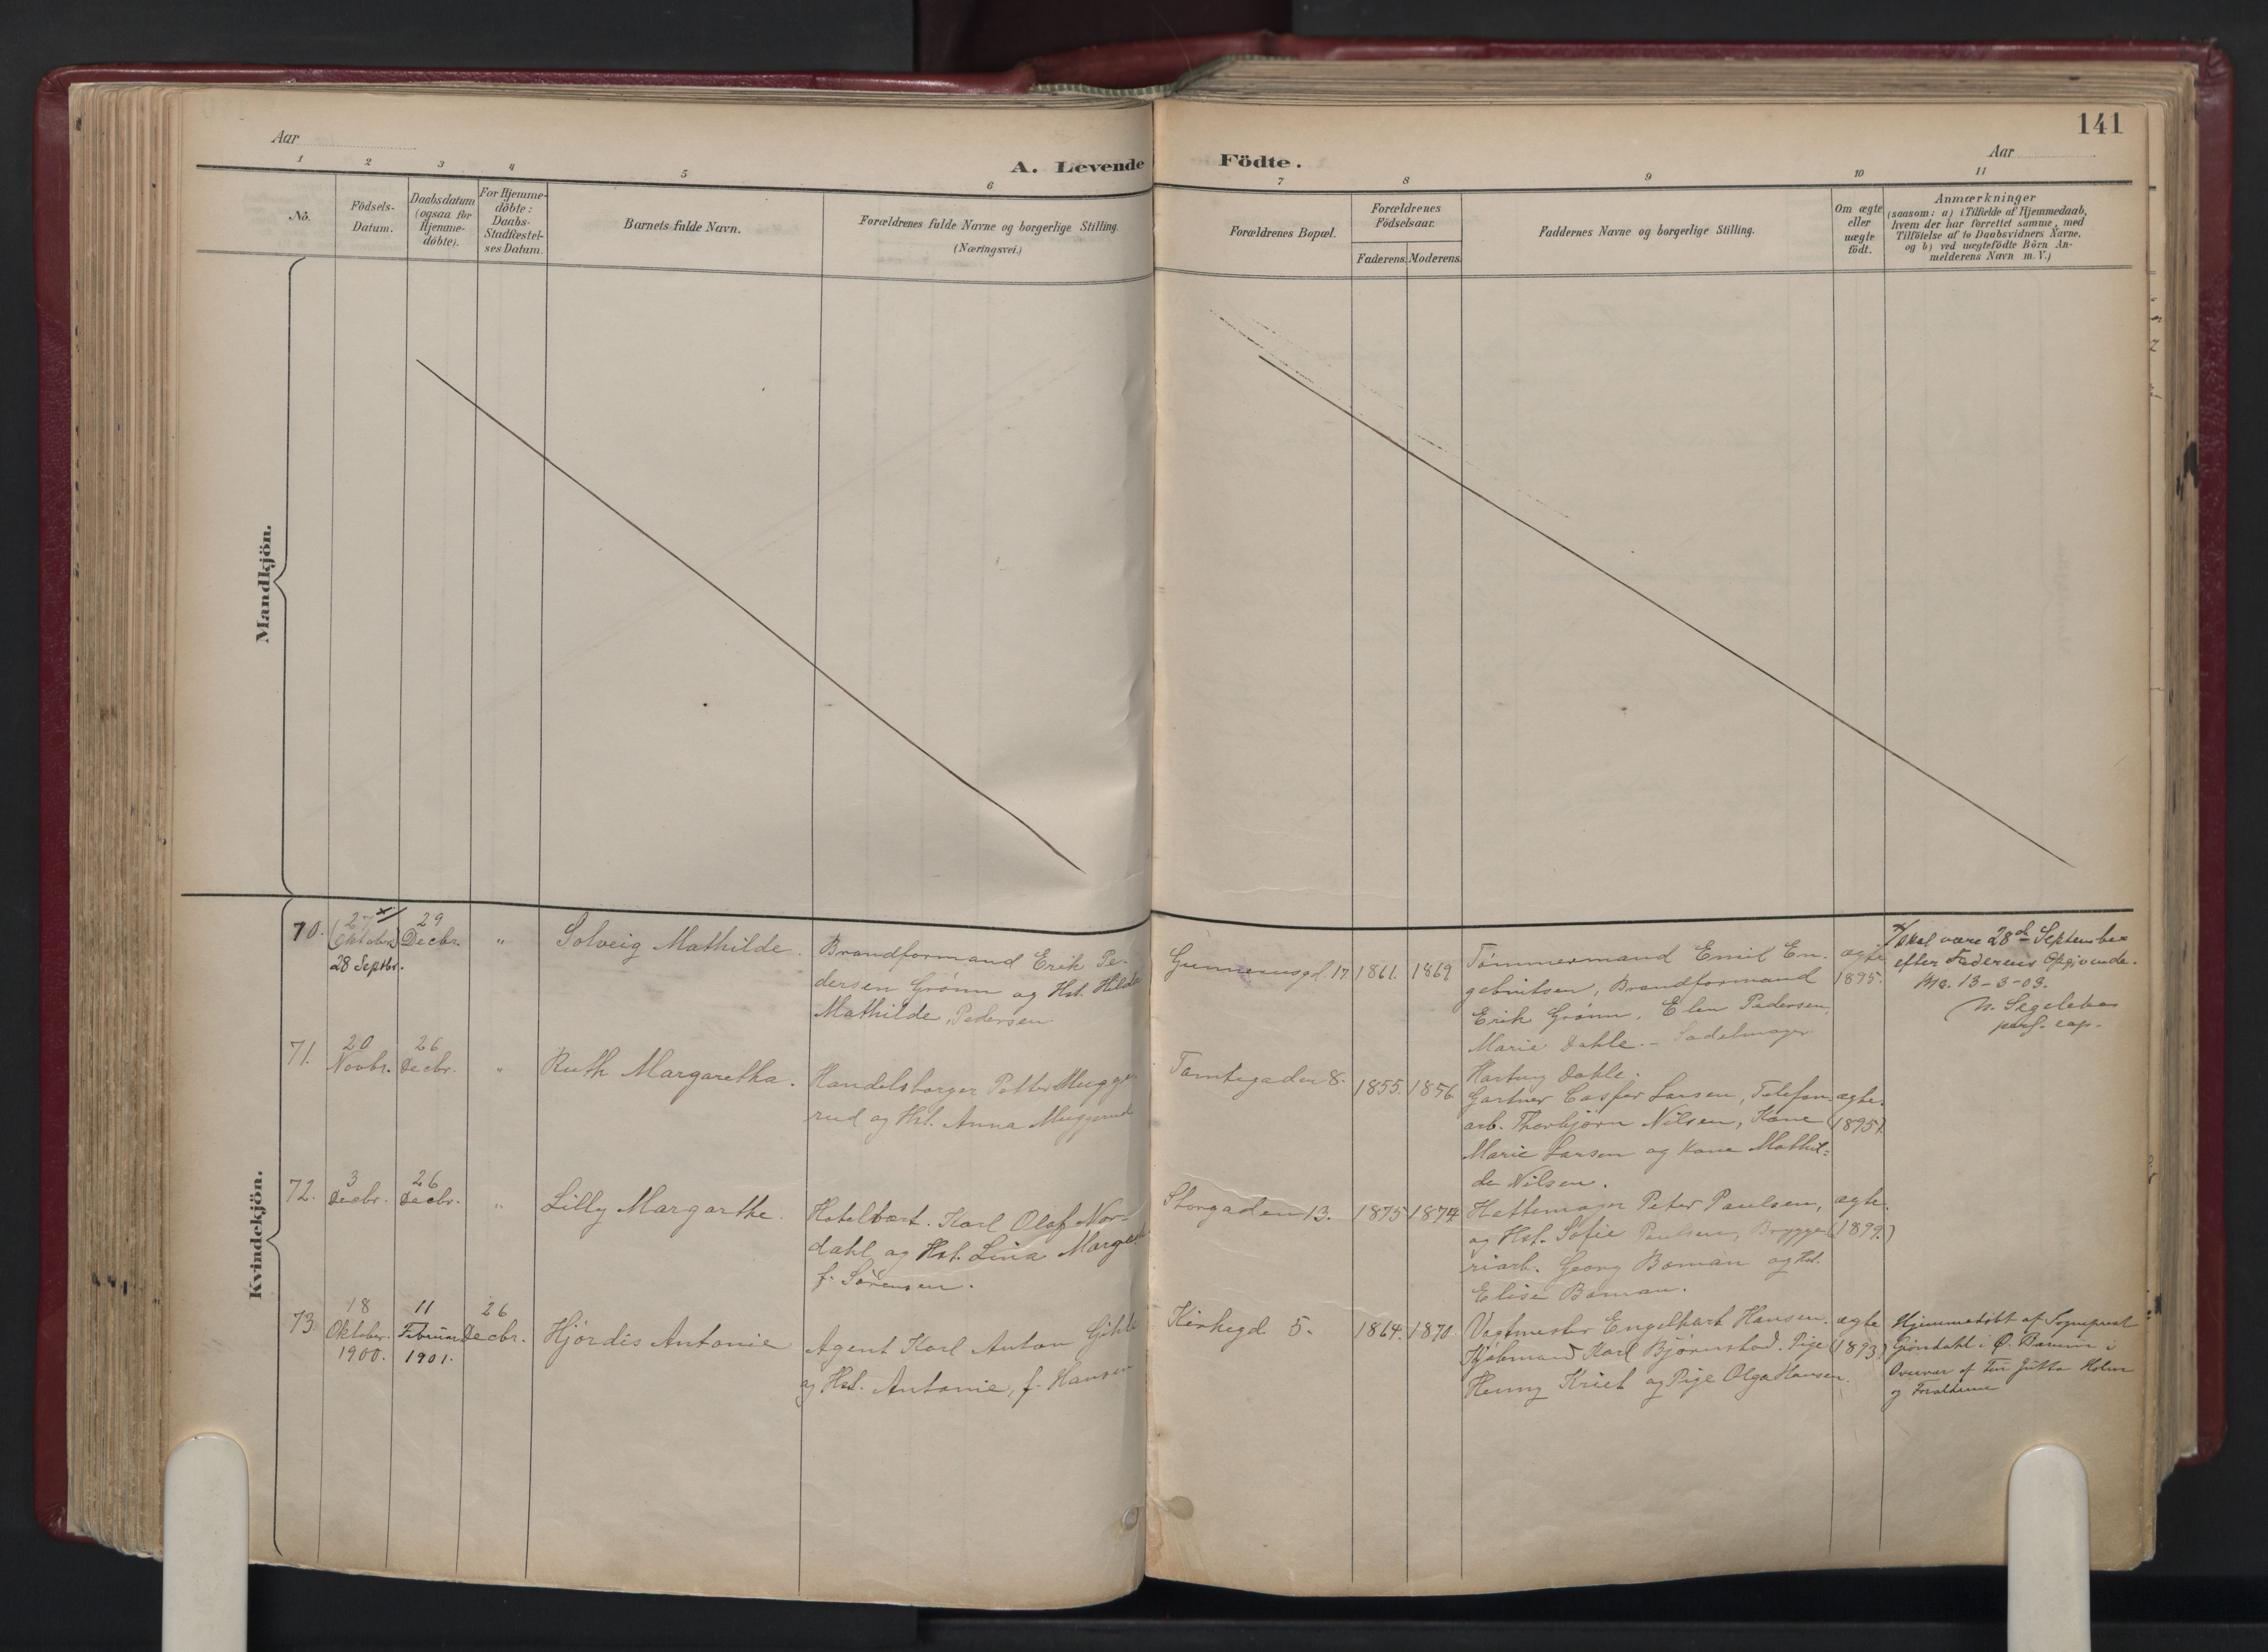 141
Aar
Aar
A. Levende Födte.
1 2 3 4 5 6 7 8 9 10 11
No.
Födsels-
Datum.
Daabsdatum
(ogsaa for
Hjemme-
döbte).
For Hjemme-
döbte:
Daabs-
Stadfæstel-
ses Datum.
Barnets fulde Navn.
Forældrenes fulde Navne og borgerlige Stilling.
(Næringsvei.)
Forældrenes Bopæl.
Forældrenes
Födselsaar.
Faderens. Moderens.
Faddernes Navne og borgerlige Stilling.
Om ægte
eller
uægte
födt.
Anmærkninger
(saasom: a) i Tilfælde af Hjemmedaab,
hvem der har forrettet samme, med
Tilföielse af to Daabsvidners Navne.
og b) ved uægtefödte Börn An-
melderens Navn m. V.)
Mandkjön.
Kvindekjön.
70.
27 x/
(Oktober)
28 Septbr.
29
Decbr.
"
Solveig Mathilde.
Brandformand Erik Pe-
dersen Grönn og Hst. Hilda
Mathilde, Pedersen
Gunnerusgd. 17
1861.
1869
Tömmermand Emil En-
gebritsen, Brandformand
Erik Grönn, Elen Pedersen,
Marie Dahle. - Sadelmager
Hartvig Dahle.
ægte
1895.
x/ skal være 28de September
efter Faderens Opgivende.
13-3-03.
pers. cap.
71.
20
Novbr.
26
Decbr.
"
Ruth Margaretha.
Handelsborger Petter Mugge
rud og Hst. Anna Muggerud
Tomtegaden 8.
1855.
1856
Gartner Casper Larsen, Telefon
arb. Thorbjörn Nilsen, Kone
Marie Larsen og Kone Mathil-
de Nilsen.
ægte.
(1895).
72.
3
Decbr.
26
Decbr.
"
Lilly Margarthe.
Hotelvært. Karl Olaf Nor-
dahl og Hst. Lina Margrethe
f. Sörensen.
Storgaden 13.
1875
1874
Hattemager Peter Paulsen,
og Hst. Sofie Paulsen, Brygge
riarb. Georg Boman og Hst.
Elise Boman.
ægte.
(1899.)
73.
18
Oktober.
1900.
11
Februar
1901.
26
Decbr.
Hjördis Antonie
Agent Karl Anton Gihle
og Hst. Antonie, f. Hansen
Kirkegd. 5.
1864.
1870.
Vagtmester Engelhart Hansen.
Kjöbmand Karl Björnstad. Pige
Henny Kriet og Pige Olga Hansen.
ægte
(1893)
Hjemmedöbt af Sogneprest
Gröndahl i Ö. Bærum i
Overvær af Frü Jutta Holm
og Forældrene